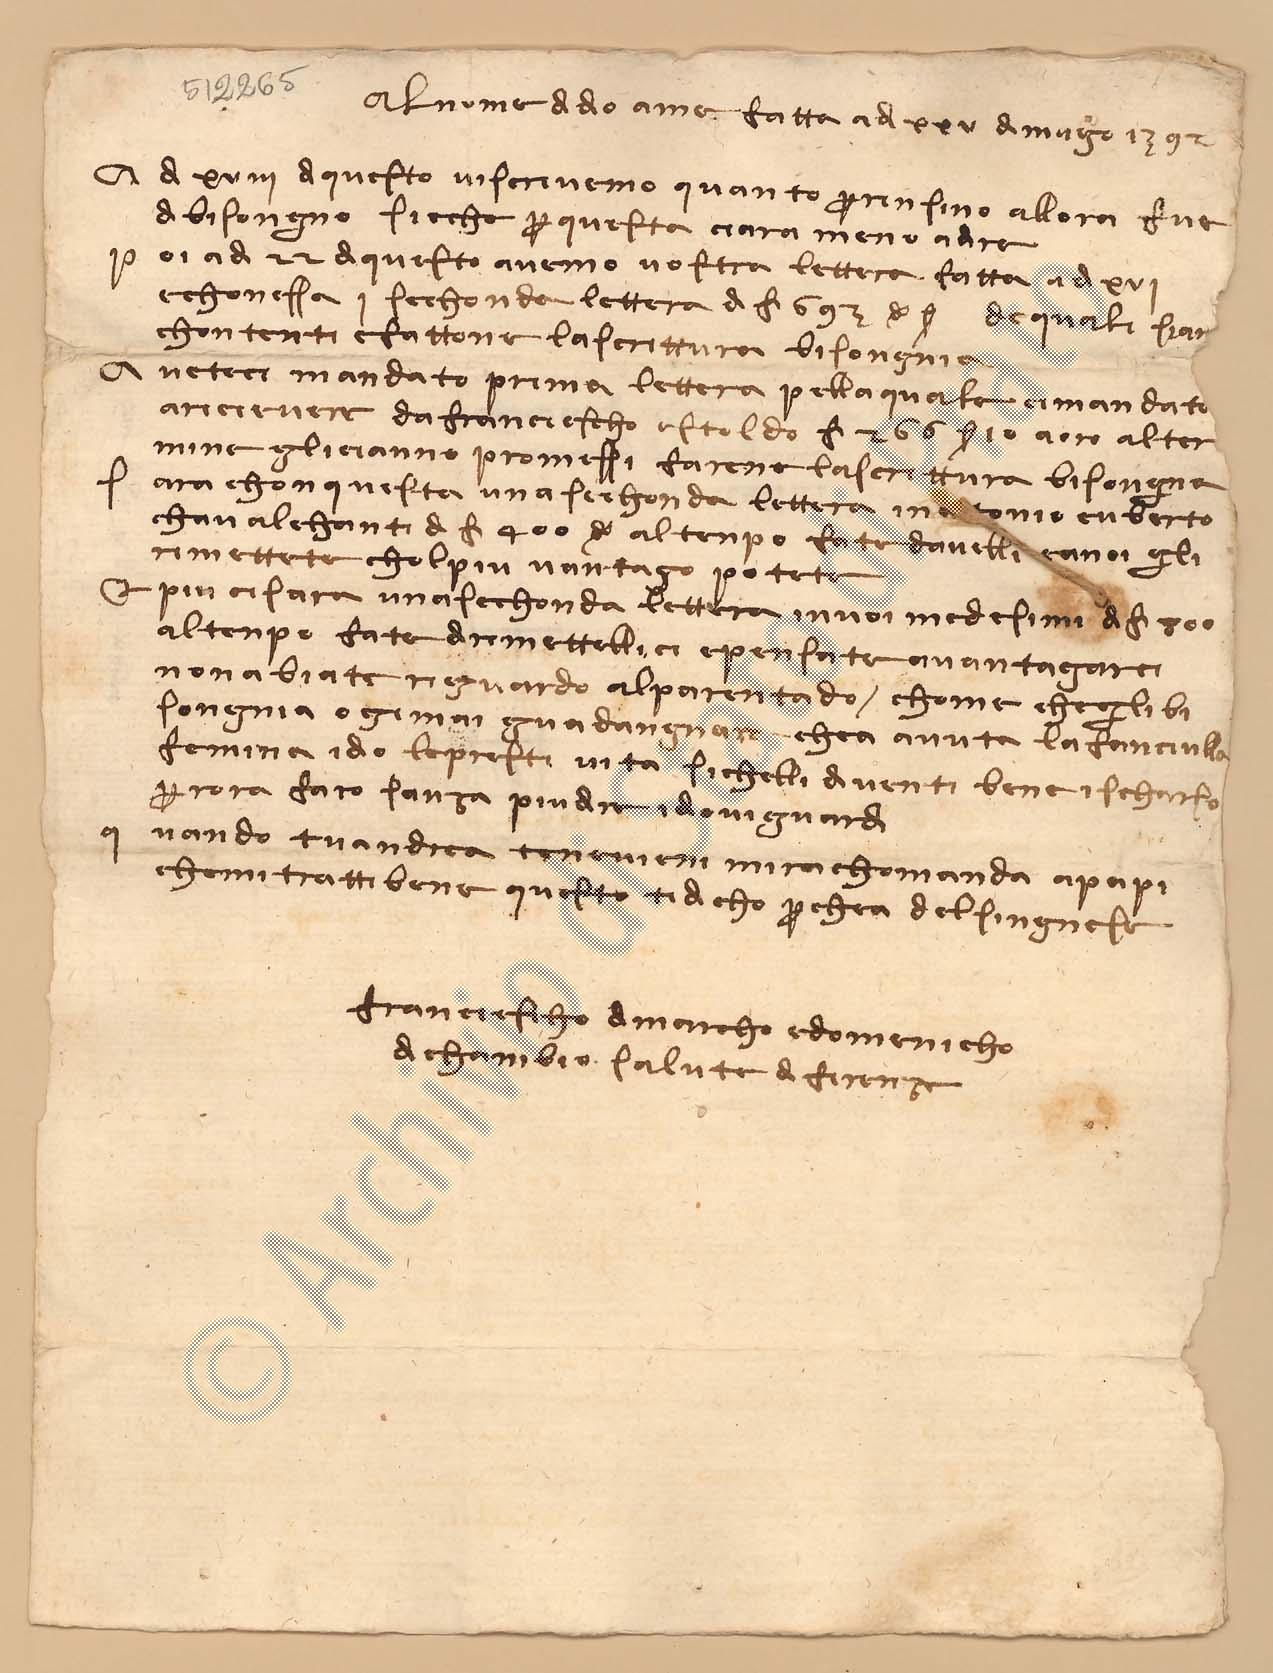 512265
Al nome d dio ame fatta ad xxv d mago 1392
A d xviii d questo viscrivemo quanto per insino allora fue
d bisongno sicche per questa ciara meno a dire
p oi ad 22 d questo avemo vostra lettera fatta ad xvi
e chonessa j sechonda lettera d f 693 de quali sian
chontenti e fattone la scrittura bisongnia
A veteci mandato prima lettera p ella quale ci mandato
a ricievere da franciescho e stoldo f 266 s 10 a oro al ter
mine gli ci anno promessi farene la scrittura bisongna
s ara chon questa una sechonda lettera in antonio e uberto
chavalchanti d f 400 al tenpo fate davelli e a noi gli
rimettete chol piu vantago potete
E piu ci sara una sechonda lettera in voi medesimi d f 300
al tenpo fate di rimettellici e pensate avantagarci
non abiate riguardo al parentado / chome che gli bi
songnia ogimai guadangnare che a avuta la fanciulla
femina idio le presti vita si chelli diventi bene ischarso
per ora faro sanza piu dire idio vi guardi
q uando tu andrea te ne vieni mi rachomanda a papi
che mi tratti bene questo ti dicho perche a del singnese
franciescho d marcho e domenicho
d chambio salute d firenze
© Archivio di Stato di Prato